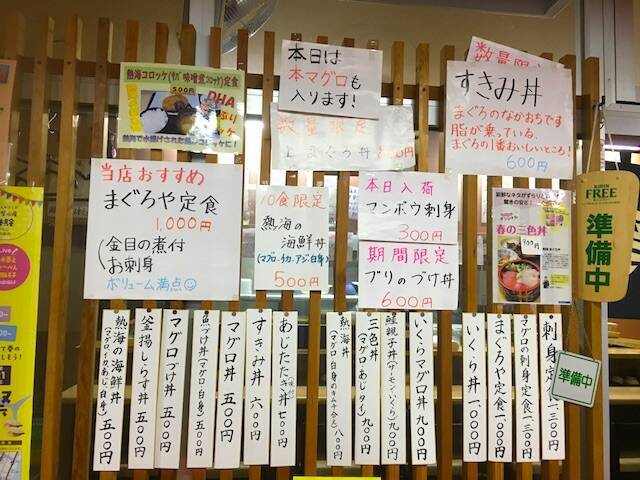 熱海コロッケ(サバ味噌煮コロッケ)定食
500円
DHA
たっぷり
コロッケ
熱海で水揚げされた魚コロッケに!
本日は
本マグロも
入ります!
数量限定
数量限定
すきみ丼
まぐろのなかおちです
脂が乗っている、
まぐろの1番おいしいところ!
600円
当店おすすめ
まぐろや定食
1,000円
金目の煮付
お刺身
ボリューム満点
10食限定
熱海の
海鮮丼
(マグロ・イカ・アジ・白身)
500円
本日入荷
マンボウ刺身
300円
期間限定
ブリのづけ丼
600円
春の三色丼
900円
FREE
準備中
準備中
熱海の海鮮丼
(マグロ・イカ・アジ・白身)
五〇〇円
釜揚しらす丼 五〇〇円
マグロづけ丼 五〇〇円
魚づけ丼(マグロ・白身) 五〇〇円
マグロ丼 五〇〇円
すきみ丼 六〇〇円
あじたたき丼 七〇〇円
熱海丼
(マグロ・白身のキムチ合え) 八〇〇円
三色丼
(マグロ・あじ・タイ) 九〇〇円
鮭親子丼(サーモン・いくら) 九〇〇円
いくらマグロ丼 九〇〇円
いくら丼 一〇〇〇円
まぐろや定食 一〇〇〇円
マグロの刺身定食 一三〇〇円
刺身定食 一三〇〇円